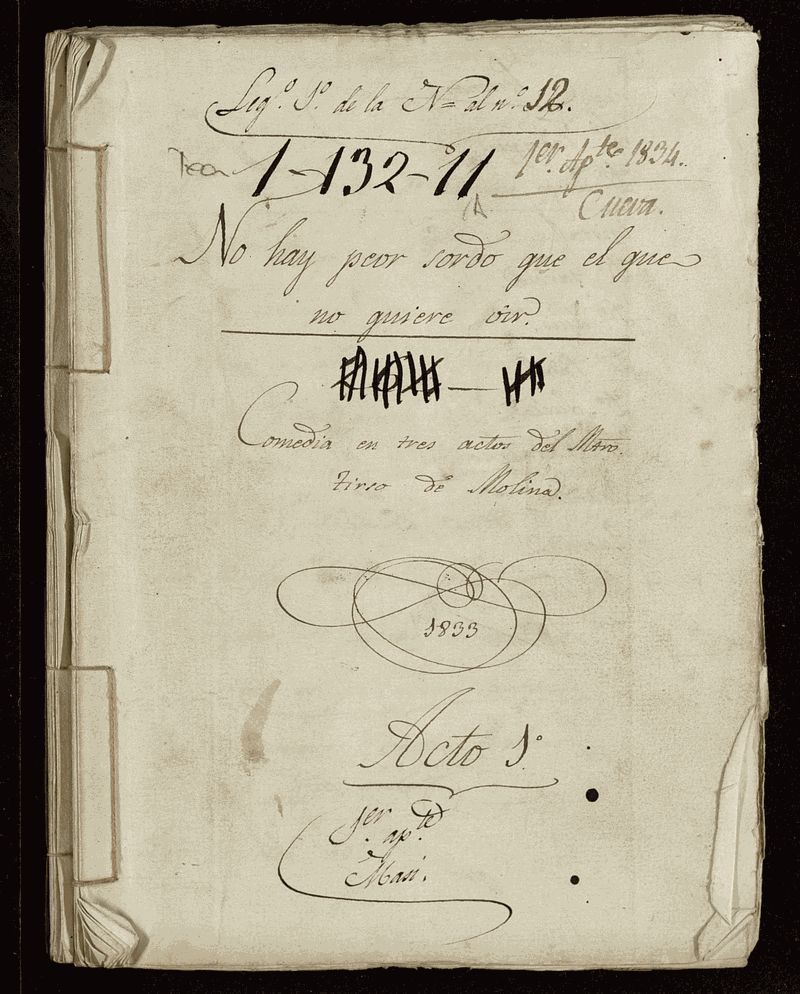 Leg.º 1.º de la N= al n.º 12.
Tea 1-132-11
1er. Apte 1834.
Cueva.
No hay peor sordo que el que
no quiere oir.
Comedia en tres actos del Mtro.
Tirso de Molina.
1833
Acto 1º
1er. apte
Masi.